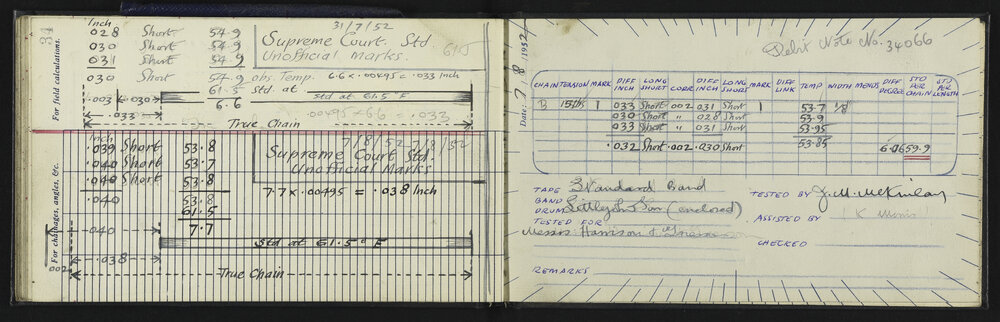 31
For field calculations.
Inch
028 Short 54.9
030 Short 54.9
031 Short 54.9
030 Short 54.9
61.5
6.6
31/7/52
Supreme Court. Std
Unofficial Marks.
obs. Temp. 6.6 x .00495 = .033 Inch
Std. at
Std at 61.5° F
.003 .030
.033
.00495 x 66 .033
True Chain
For chainages, angles, etc.
Inch
.039 Short 53.8
.040 Short 53.7
.040 Short 53.8
.040 53.8
61.5
7.7
7/8/52 7/8/52
Supreme Court Std.
Unofficial Marks
7.7 x .00495 = .038 Inch
.040
Std at 61.5° F
.038
002
True Chain
Debit Note No. 34066
Date: 7 / 8 /1952
CHAIN TENSION MARK DIFF INCH LONG SHORT CORR DIFF INCH LONG SHORT MARK DIFF LINK TEMP WIDTH MENDS DIFF DEGREE STD PER CHAIN STD PER LENGTH
B 15 lbs 1 033 Short 002 031 Short 1 53.7 1/8"
030 Short " 028 Short 53.9
033 Short " 031 Short 53.95
.032 Short .002 .030 Short 53.85 6.06 59.9
TAPE Standard Band
BAND
DRUM Littlejohn & Son (enclosed)
TESTED FOR
Messrs Harrison &
TESTED BY J.M. McKinlay
ASSISTED BY K
CHECKED
REMARKS